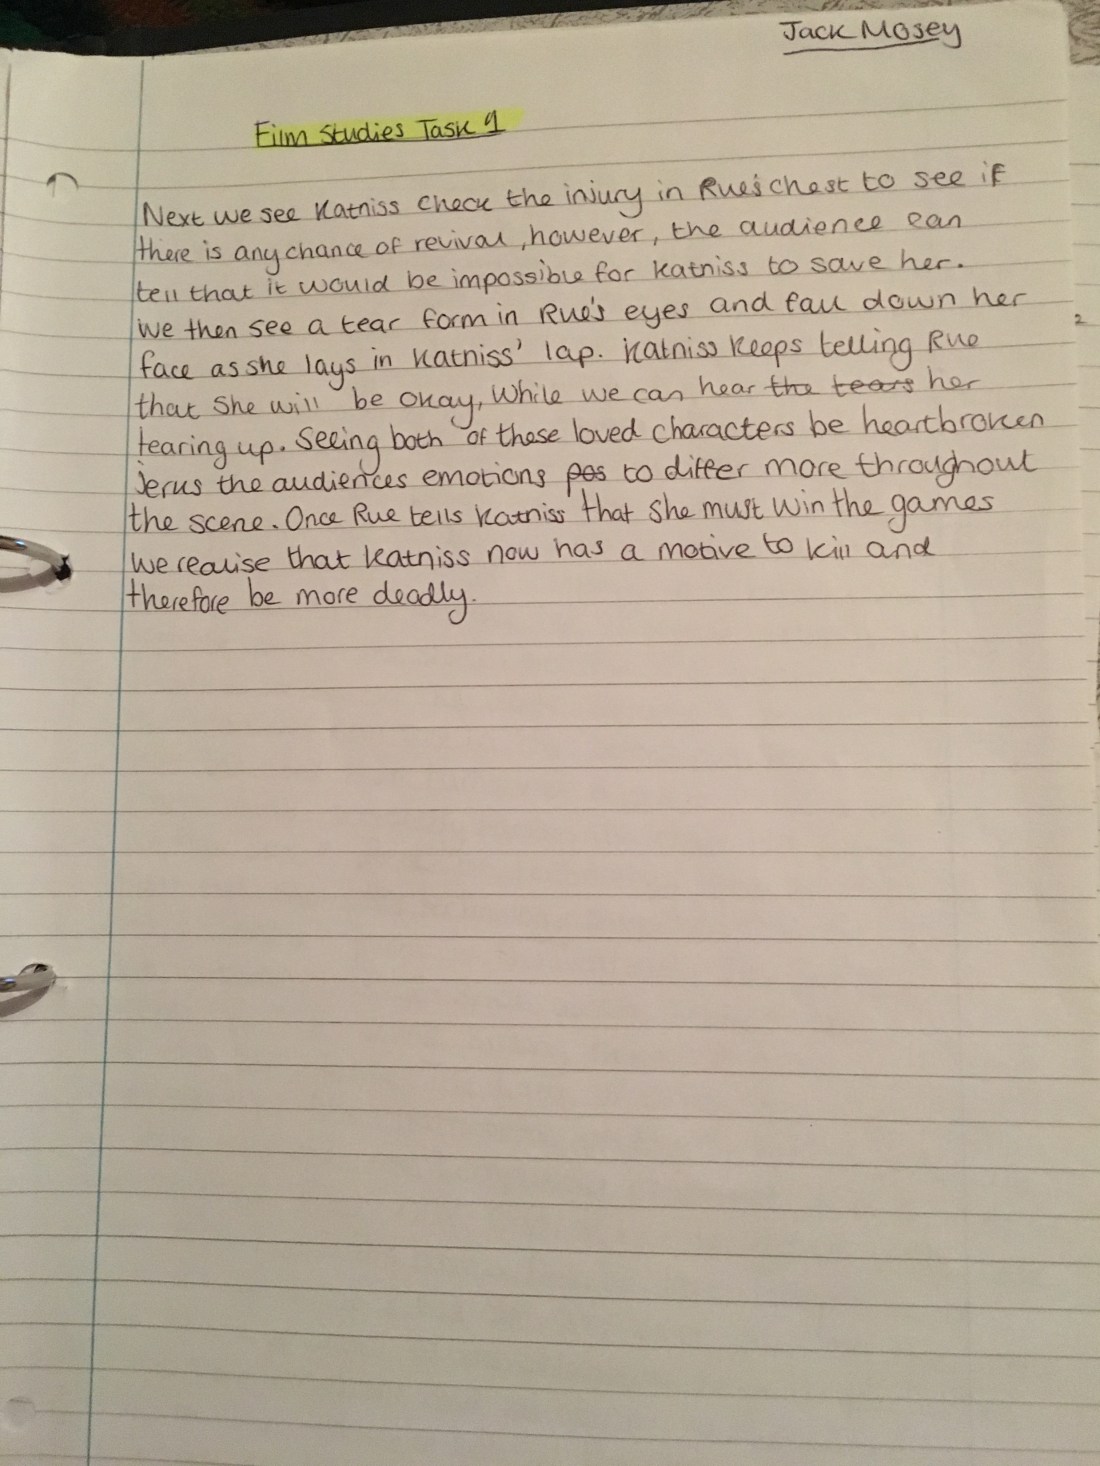 Jack Mosey
Film Studies Task 1
Next we see Katniss check the injury in Rue's chest to see if
there is any chance of revival, however, the audience can
tell that it would be impossible for Katniss to save her.
We then see a tear form in Rue's eyes and fall down her
face as she lays in Katniss' lap. Katniss keeps telling Rue
that she will be okay, While we can hear the tears her
tearing up. Seeing both of these loved characters be heartbroken
jerks the audiences emotions pos to differ more throughout
the scene. Once Rue tells Katniss that she must win the games
we realise that Katniss now has a motive to kill and
therefore be more deadly.
2